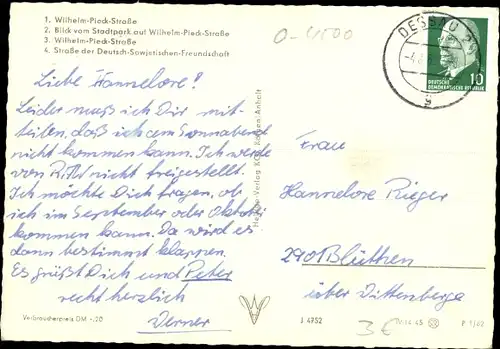 1. Wilhelm-Pieck-Straße
2. Blick vom Stadtpark auf Wilhelm-Pieck-Straße
3. Wilhelm-Pieck-Straße
4. Straße der Deutsch-Sowjetischen-Freundschaft
0-4500
DESSAU
DEUTSCHE
DEMOKRATISCHE REPUBLIK
10
Liebe Hannelore!
Leider muß ich Dir mit-
teilen, daß ich am Sonnabend
nicht kommen kann. Ich werde
von nicht freigestellt.
Ich möchte Dich fragen, ob
ich im September oder Oktob.
kommen kann. Da wird es
dann bestimmt klappen.
Es grüßt Dich und Peter
recht herzlich
Werner
Verlag Köthen/Anhalt
Frau
Hannelore Rieger
2910 Blüthen
über Wittenberge
Verbraucherpreis DM -,20
J 4952
3€
IV-14-45
P 1/62